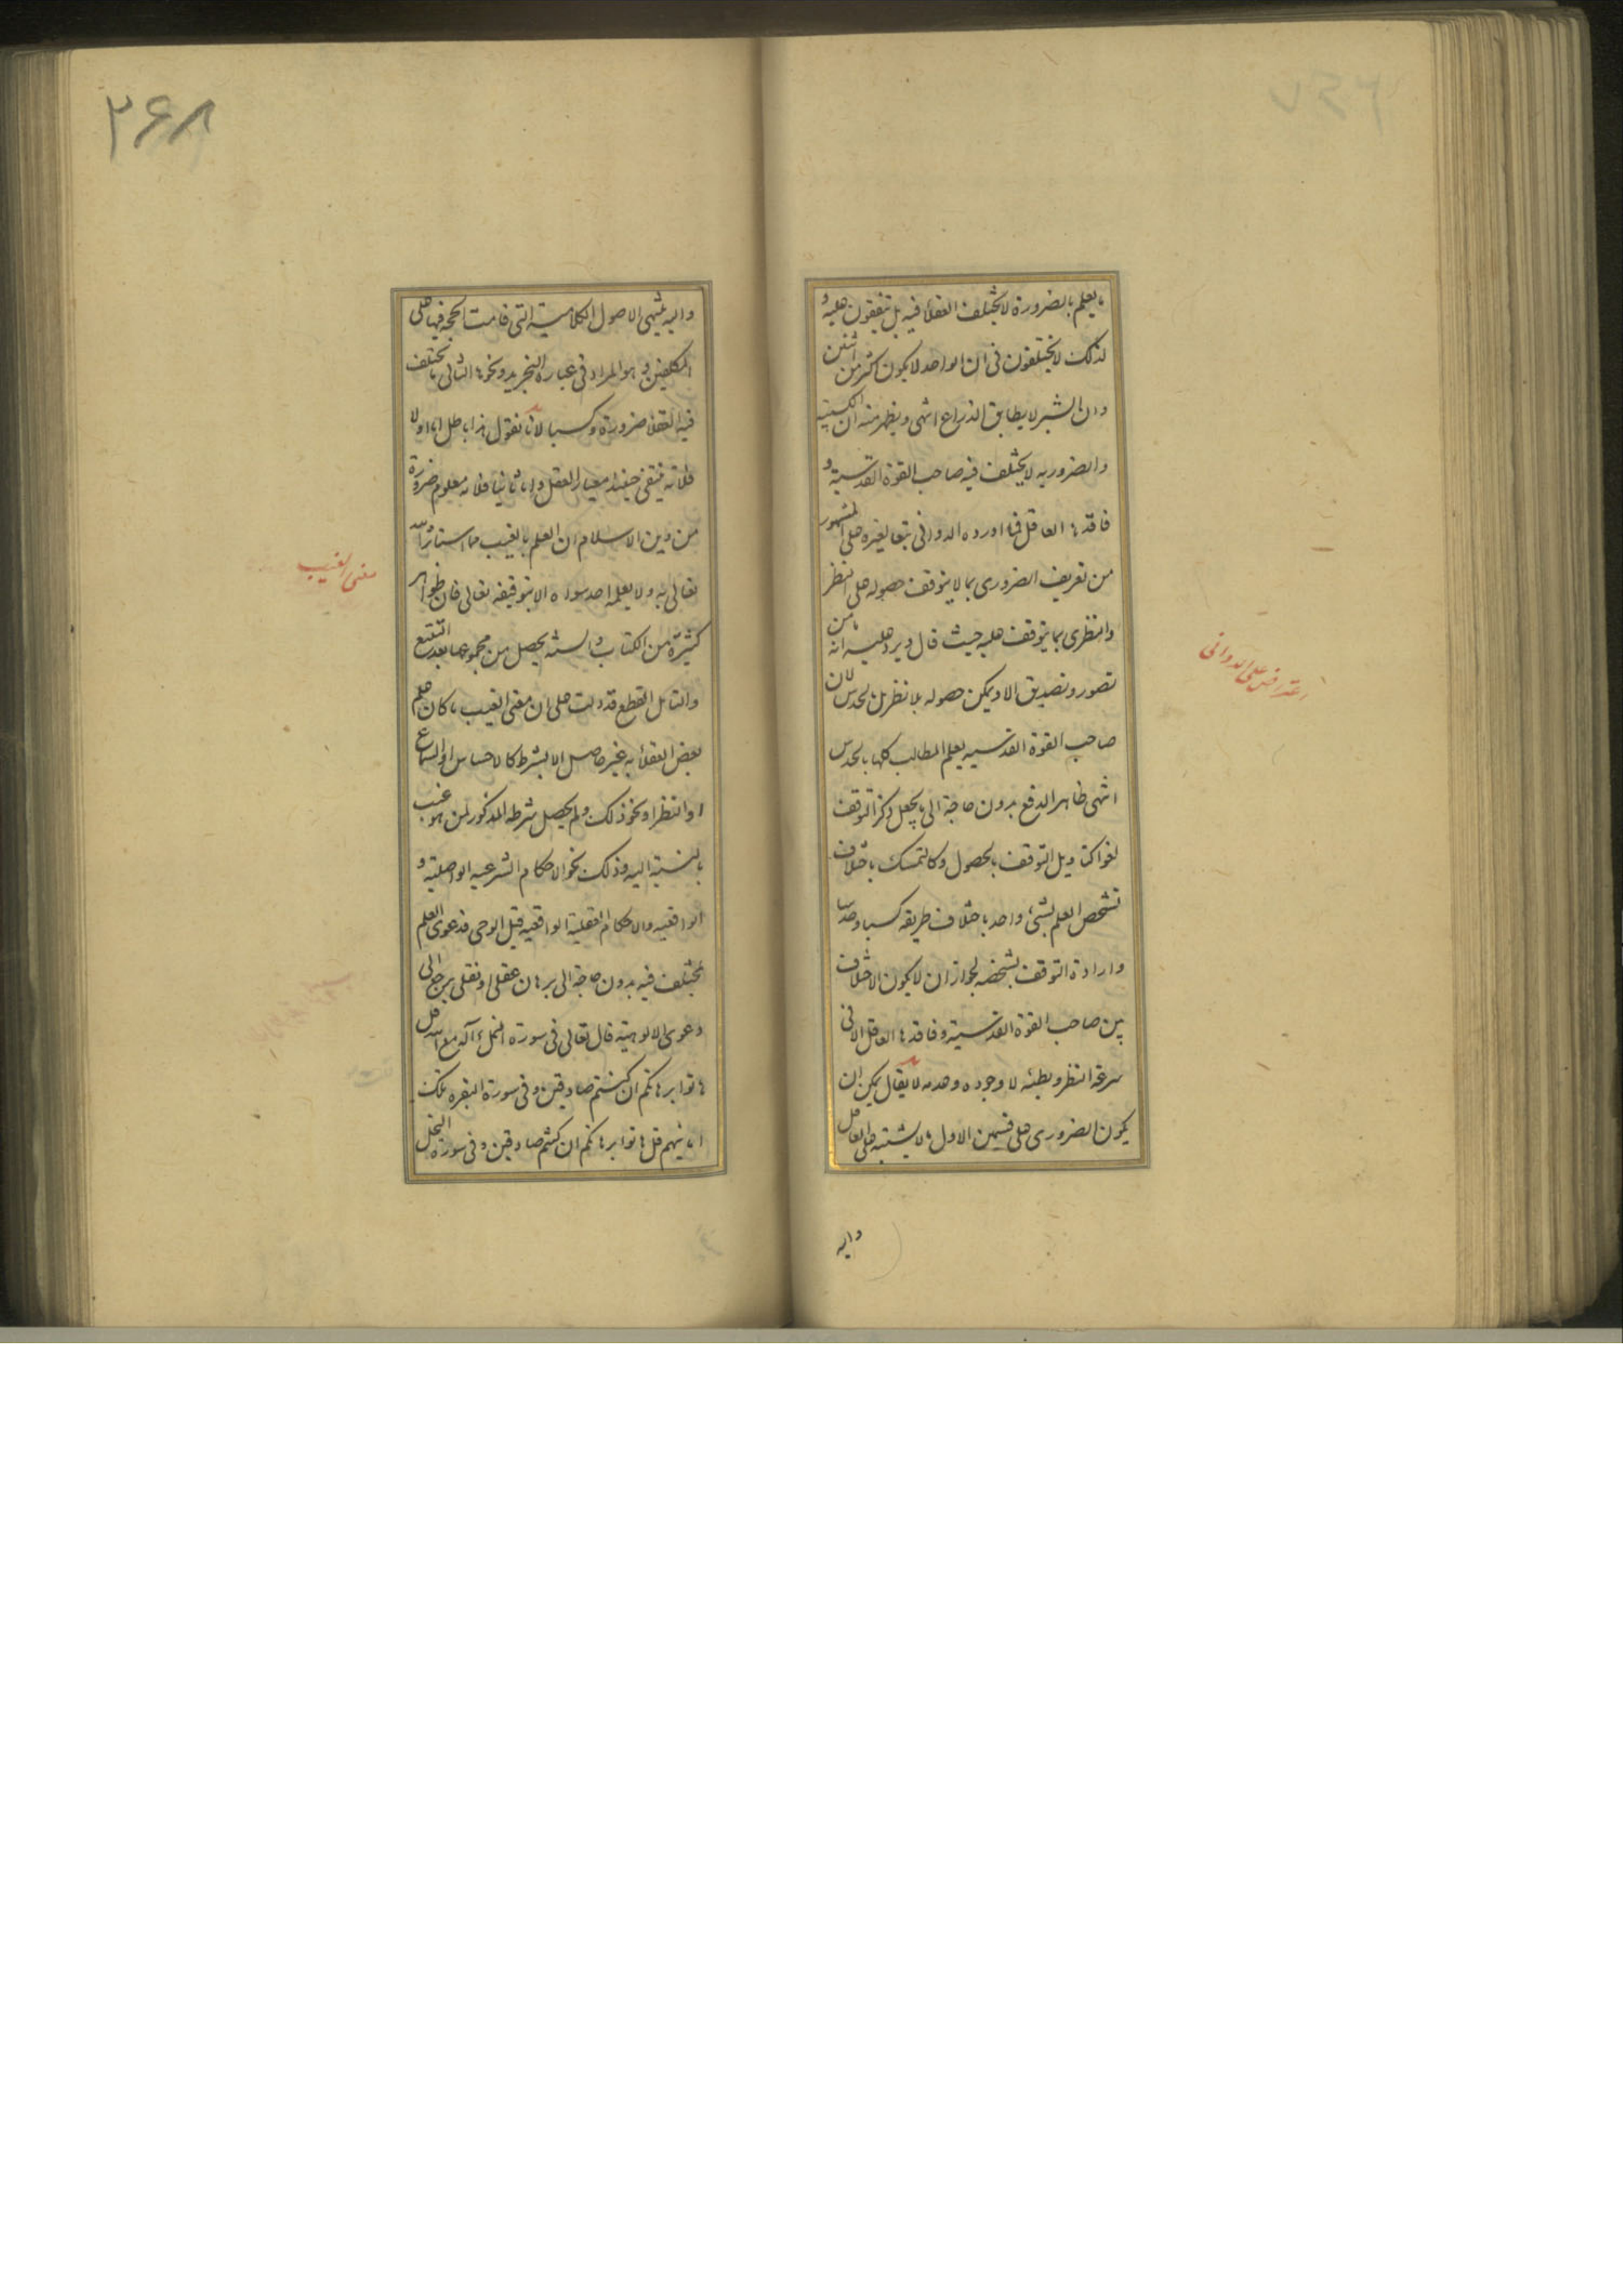 ما يعلم بالضرورة لا يختلف العقلاء فيه بل يتفقون عليه و
لذلك لا يختلفون في ان الواحد لا يكون اكثر من اثنين
وان الشبر لا يطابق الذراع انتهى ويظهر منه ان الكسبية
والضرورية لا يختلف فيه صاحب القوة القدسية و
فاقدها العاقل فما اورده الدواني تبعا لغيره على المشهور
من تعريف الضروري بما لا يتوقف حصوله على النظر
والنظري بما يتوقف عليه حيث قال ويرد عليه انه ما من
تصور وتصديق الا ويمكن حصوله بلا نظر بل بحدس لان
صاحب القوة القدسية يعلم المطالب كلها بالحدس
انتهى ظاهر الدفع بدون حاجة الى ما يجعل ذكر التوقف
لغوا كتاويل التوقف بالحصول وكالتمسك باختلاف
تشخص العلم بشيء واحد باختلاف طريقه كسبا وحدسا
وارادة التوقف بشخصه لجواز ان لا يكون الاختلاف
بين صاحب القوة القدسية وفاقدها العاقل الا في
سرعة النظر وبطئه لا وجوده وعدمه لا يقال يمكن ان
يكون الضروري على قسمين الاول ما لا يشتبه على العاقل
واليه
اعتراض على الدواني
۲۶۸
واليه ينتهي الاصول الكلامية التي قامت الحجة فيها على
المكلفين و هو المراد في عبارة التجريد ونحوها الثاني ما يختلف
فيه العقلاء ضرورة وكسبا لانا نقول هذا باطل اما اولا
فلانه ينتفي حينئذ معيار العقل واما ثانيا فلانه معلوم ضرورة
من دين الاسلام ان العلم بالغيب مما استأثر الله
تعالى به ولا يعلمه احد سواه الا بتوقيفه تعالى فان ظواهر
كثيرة من الكتاب والسنة يحصل من مجموعها بعد التتبع
والتامل القطع قد دلت على ان معنى الغيب ما كان علم
بعض العقلاء به غير حاصل الا بشرط كالاحساس او السماع
او النظر او نحو ذلك ولم يحصل شرطه المذكور لمن هو غيب
بالنسبة اليه وذلك نحو الاحكام الشرعية الواصلية و
الواقعية والاحكام العقلية الواقعية قبل الوحي فدعوى العلم
بمختلف فيه بدون حاجة الى برهان عقلي او نقلي يرجع الى
دعوى الالوهية قال تعالى في سورة النمل ءاله مع الله قل
هاتوا برهانكم ان كنتم صادقين وفي سورة البقرة تلك
امانيهم قل هاتوا برهانكم ان كنتم صادقين وفي سورة النحل
معنى الغيب